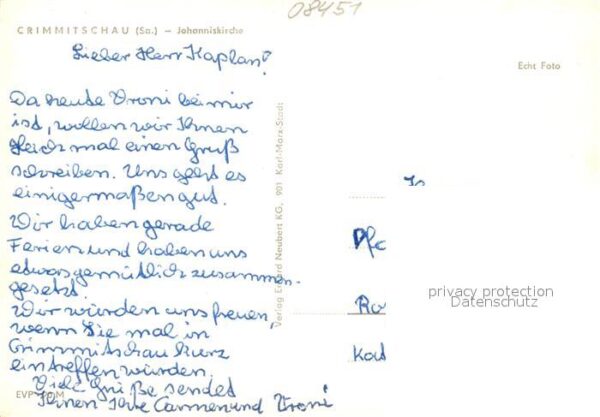 08451
CRIMMITSCHAU (Sa.) — Johanniskirche
Lieber Herr Kaplan!
Echt Foto
Da heute Vroni bei mir
ist, wollen wir Ihnen
gleich mal einen Gruß
schreiben. Uns geht es
einigermaßen gut.
Wir haben gerade
Ferien und haben uns
etwas gemütlich zusammen-
gesetzt.
Wir würden uns freuen,
wenn Sie mal in
Crimmitschau kurz
eintreffen würden.
Viele Grüße sendet
Ihnen Ihre Carmen und Vroni
EVP
M
Verlag Erhard Neubert KG, 901 Karl-Marx-Stadt
Ro
privacy protection
Datenschutz